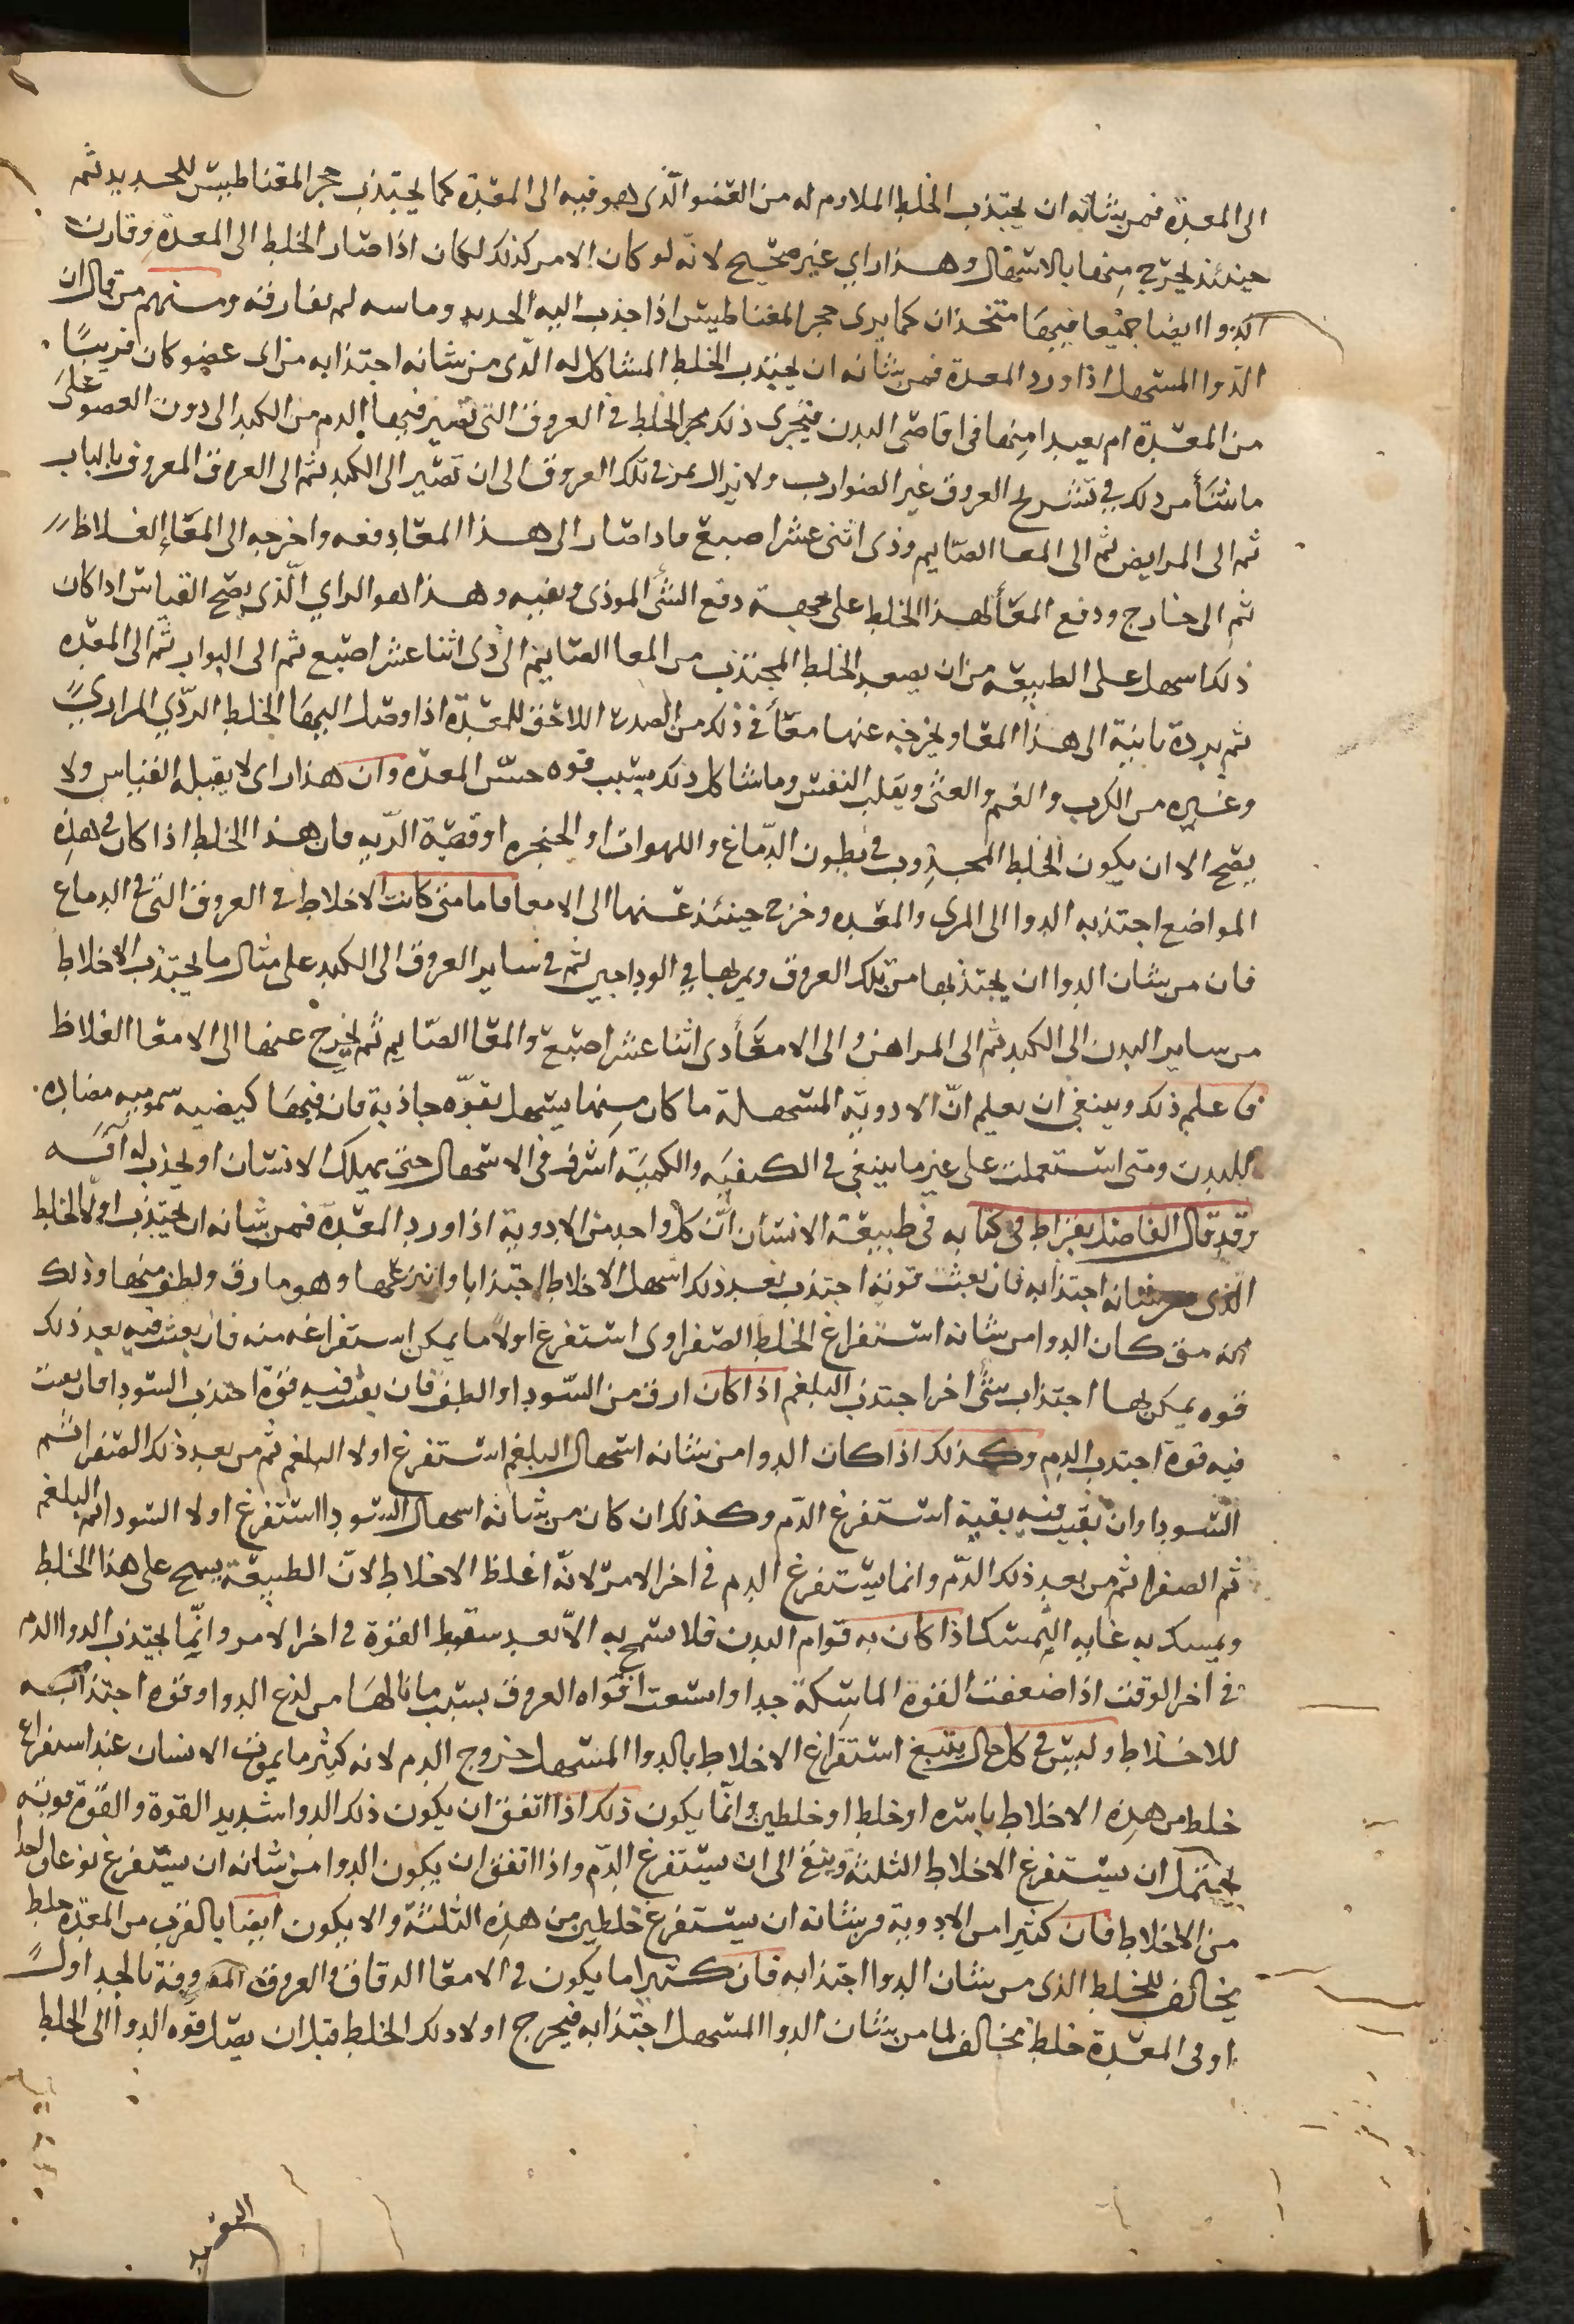 الى المعدة فمن شانه ان يجتذب الخلط الملاوم له من العضو الذى هو فيه الى المعدة كما يجتذب حجر المقناطيس للحديد ثم
حينئذ يخرج منها بالاسهال وهذا راي غير صحيح لانه لو كان الامر كذلك لكان اذا صار الخلط الى المعدة وقارن
الدوا ايضا جميعا فيها متخذان كما يرى حجر المغناطيس اذا جذب اليه الحديد وماسه لم يفارقه ومنهم من قال ان
الدوا المسهل اذا ورد المعدة فمن شانه ان يجتذب الخلط المشاكل له الذى من شانه اجتذابه من اى عضو كان قريبا
من المعدة ام بعيدا منها فى اقاصى البدن فيجرى ذلك الخلط فى العروق التى تصير فيها الدم من الكبد الى دون العضو على
ما نشأ من ذلك فى تشريح العروق غير الضوارب ولا يزال يمر فى تلك العروق الى ان تصير الى الكبد ثم الى العرق المعروف بالباب
ثم الى المرابض ثم الى المعا الصايم وذى اثنى عشر اصبع فاذا صار الى هذا المعا دفعه واخرجه الى المعا الغلاظ
ثم الى خارج ودفع المعا لهذا الخلط على جهة دفع الشئ الموذى ونفيه وهذا هو الراي الذى يصح القياس اذا كان
ذلك اسهل على الطبيعة من ان يصعد الخلط المجتذب من المعا الصايم الى ذى اثنا عشر اصبع ثم الى البواب ثم الى المعدة
ثم يرده ثانية الى هذا المعا ويخرجه عنها معا فى ذلك من الصدر اللاحق للمعدة اذا وصل اليها الخلط الردي المراري
وغيره من الكرب والغم والغثى وتقلب النفس وما شاكل ذلك بسبب قوه حس المعدة وان هذا راى لا يقبله القياس ولا
يصح الا ان يكون الخلط المجذوب فى بطون الدماغ واللهوات او الحنجره او قصبة الريه فان هذا الخلط اذا كان فى هذه
المواضع اجتذبه الدوا الى المرى والمعده وخرج حينئذ عنها الى الامعا فاما متى كانت الاخلاط فى العروق التى فى الدماغ
فان من شان الدوا ان يجتذبها من تلك العروق ويمر بها فى الوداجين ثم فى ساير العروق الى الكبد على مثال ما يجتذب الاخلاط
من ساير البدن الى الكبد ثم الى المراهض والى الامعا ذى اثنا عشر اصبع والمعا الصايم ثم يخرج عنها الى الامعا الغلاظ
فاعلم ذلك وينبغى ان يعلم ان الادوية المسهلة ما كان منها يسهل بقوه جاذبة فان فيها كيفيه سموميه مضاده
للبدن ومتى استعملت على غير ما ينبغي فى الكيفيه والكمية اشرف فى الاسهال حتى يهلك الانسان او يجذب له آفه
وقد قال الفاضل بقراط فى كتابه فى طبيعة الانسان ان كل واحد من الادوية اذا ورد المعدة فمن شانه ان يجتذب اولا الخلط
الذى من شانه اجتذابه فان بقيت قوته اجتذب بعد ذلك اسهل الاخلاط اجتذابا وانزعها وهو ما رق ولطف منها وذلك
انه متى كان الدوا من شانه استفراغ الخلط الصفراوى استفرغ اولا ما يمكن استفراغه منه فان بقيت فيه بعد ذلك
قوه يمكن بها اجتذاب شئ اخر اجتذب البلغم اذا كان ارق من السودا والطف فان بقت فيه قوة اجتذب السودا فان بقيت
فيه قوة اجتذب الدم وكذلك اذا كان الدوا من شانه اسهال البلغم استفرغ اولا البلغم ثم من بعد ذلك الصفرا ثم
السودا وان بقيت فيه بقية استفرغ الدم وكذلك ان كان من شانه اسهال السودا استفرغ اولا السودا ثم البلغم
ثم الصفرا ثم من بعد ذلك الدم وانما يستفرغ الدم فى اخر الامر لانه اغلظ الاخلاط لان الطبيعة يسمح على هذا الخلط
ويمسك به غايه التمسك اذا كان به قوام البدن فلا تسمح به الا بعد سقوط القوة فى اخر الامر وانما يجتذب الدوا الدم
فى اخر الوقت اذا ضعفت القوة الماسكة جدا واتسعت افواه العروق بسبب ما نالها من لذع الدوا وقوه اجتذابه
للاخلاط وليس فى كل حال يتبع استفراغ الاخلاط بالدوا المسهل خروج الدم لانه كثير ما يموت الانسان عند استفراغ
خلط من هذه الاخلاط باسره او خلط او خلطين وانما يكون ذلك اذا اتفق ان يكون ذلك الدوا شديد القوة والقوة قويه
يحتمل ان يستفرغ الاخلاط الثلثة ويبقى الى ان يستفرغ الدم واذا اتفق ان يكون الدوا من شانه ان يستفرغ نوعا واحدا
من الاخلاط فان كثيرا من الادوية من شانه ان يستفرغ خلطين من هذه الثلثة والا يكون ايضا بالقرب من المعدة خلط
يخالف للخلط الذى من شان الدوا اجتذابه فان كثيرا ما يكون فى الامعا الدقاق فى العروق المعروفة بالجداول
او فى المعدة خلط مخالف لما من شان الدوا المسهل اجتذابه فيخرج اولا ذلك الخلط قبل ان يصل قوه الدوا الى الخلط